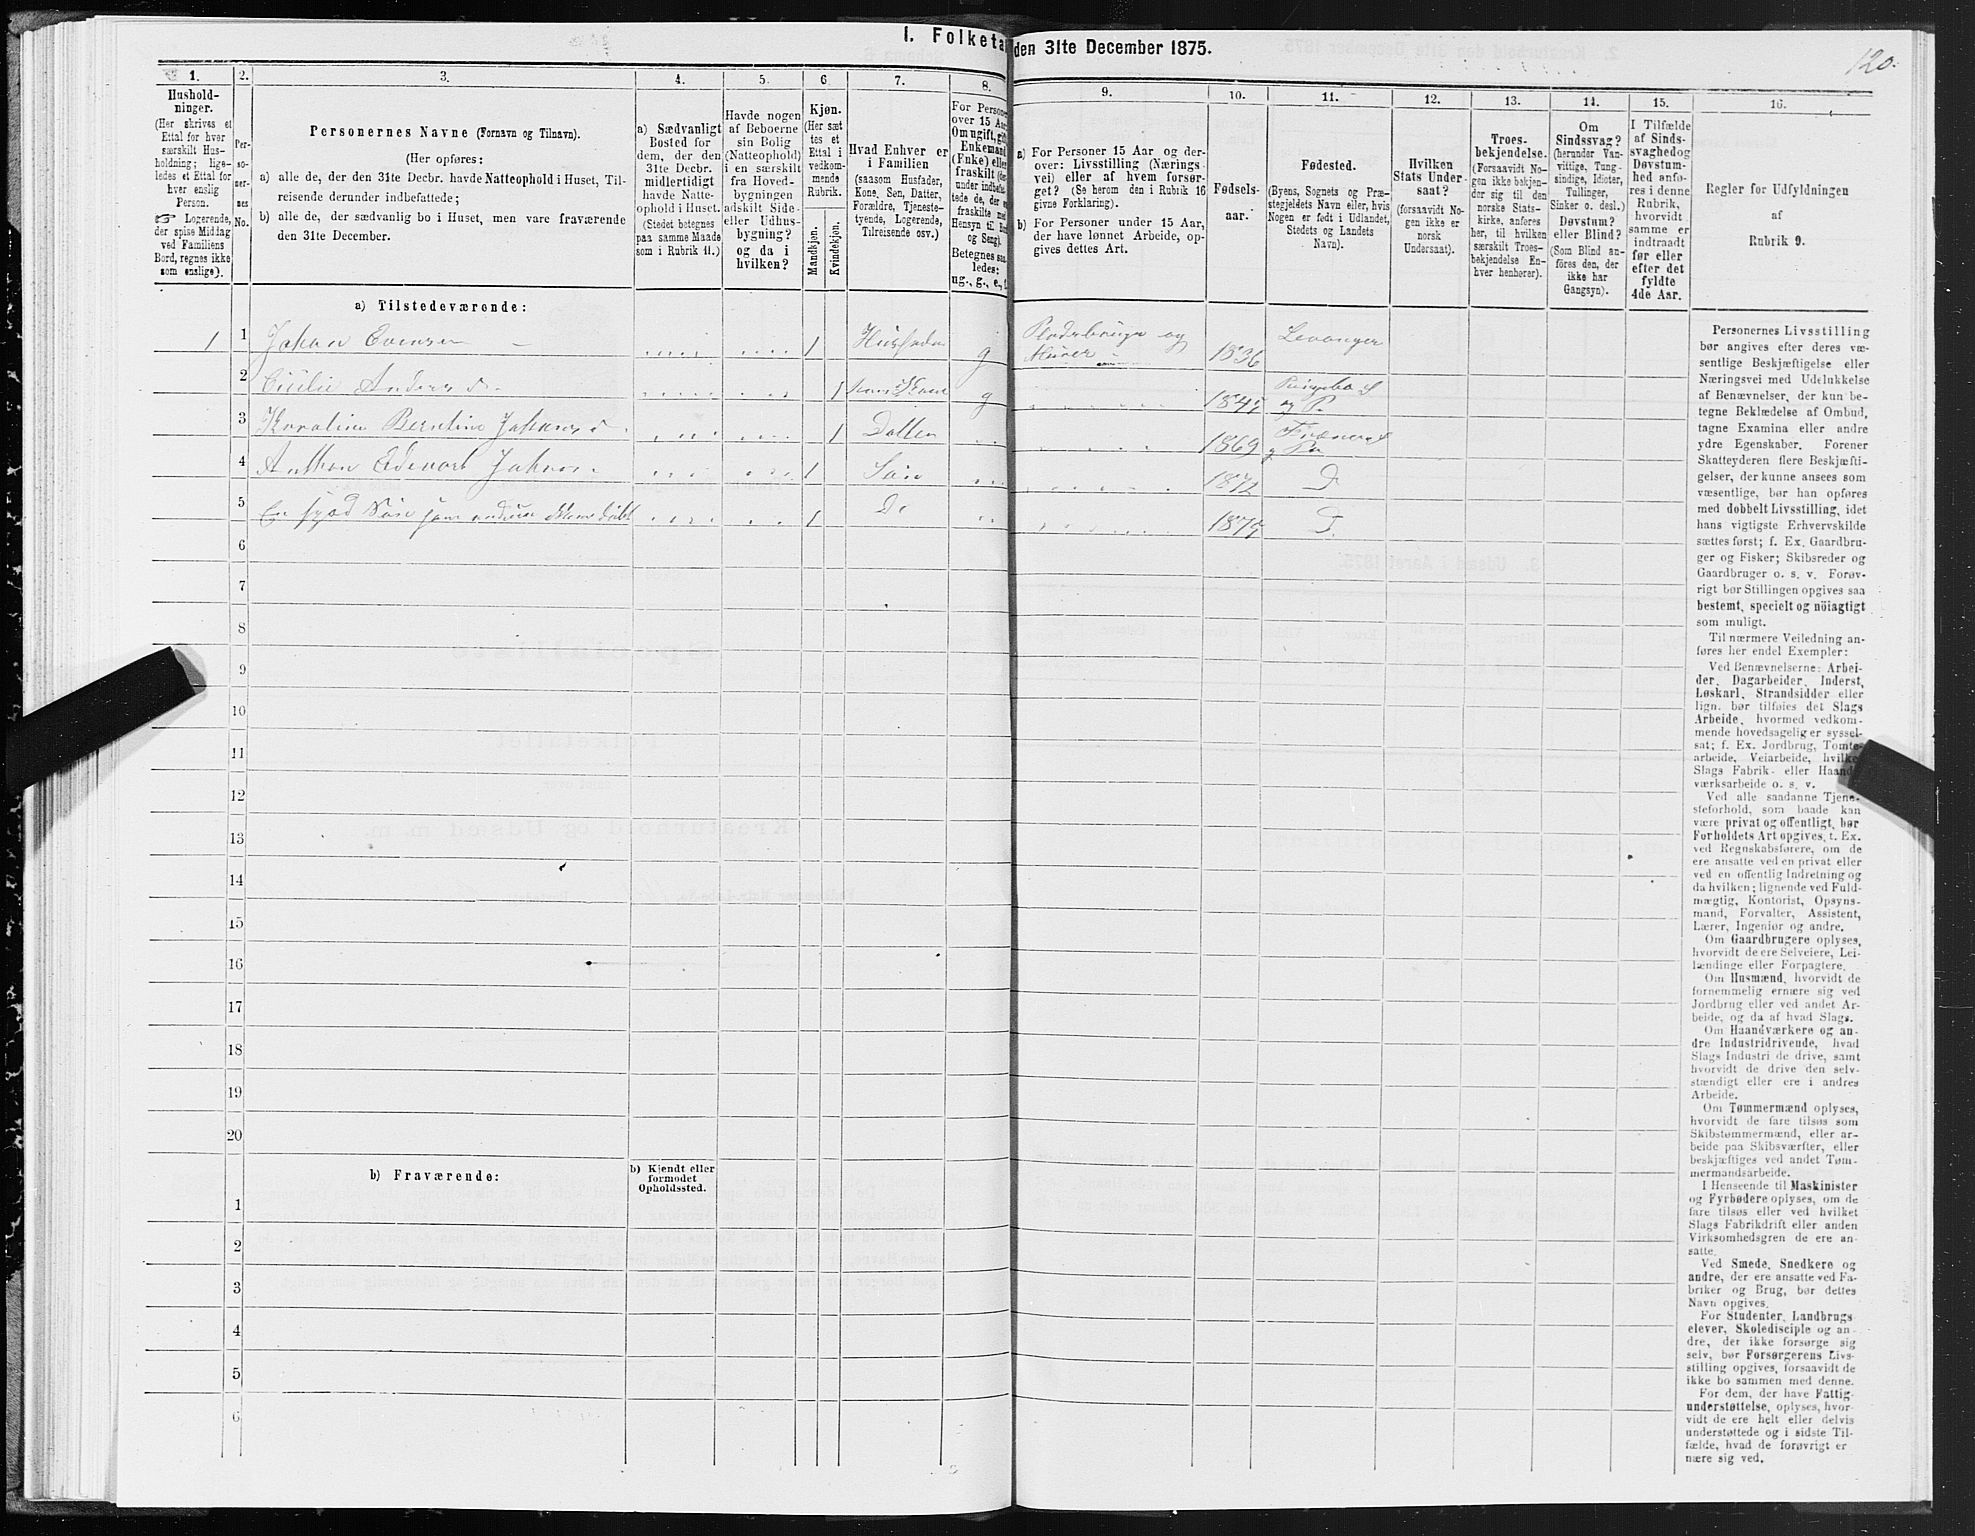 I. Folketa
den 31te December 1875.
120.
1.
Hushold-
ninger.
(Her skrives et
Ettal for hver
særskilt Hus-
holdning; lige-
ledes et Ettal for
hver enslig
Person.
☞ Logerende,
der spise Middag
ved Familiens
Bord, regnes ikke
som enslige).
2.
Per-
so-
ner-
nes
No.
3.
Personernes Navne (Fornavn og Tilnavn).
(Her opføres:
a) alle de, der den 31te Decbr. havde Natteophold i Huset, Til-
reisende derunder indbefattede;
b) alle de, der sædvanlig bo i Huset, men vare fraværende
den 31te December.
4.
a) Sædvanligt
Bosted for
dem, der den
31te Decbr.
midlertidigt
havde Natte-
ophold i Huset.
(Stedet betegnes
paa samme Maade
som i Rubrik 11.)
5.
Havde nogen
af Beboerne
sin Bolig
(Natteophold)
i en særskilt
fra Hoved-
bygningen
adskilt Side-
eller Udhus-
bygning?
og da i
hvilken?
6.
Kjøn.
(Her sæt
tes et
Ettal i
vedkom-
mende
Rubrik.
Mandkjøn.
Kvindekjøn.
7.
Hvad Enhver er
i Familien
(saasom Husfader,
Kone, Søn, Datter,
Forældre, Tjeneste-
tyende, Logerende,
Tilreisende osv.)
8.
For Persone
over 15 Aar
Om ugift, gift
Enkemand
(Enke) eller
fraskilt
under indbefat-
tede de, der er
fraskilte med
Hensyn til Bo
og Seng).
Betegnes saa-
ledes:
ug., g., e.,
9.
a) For Personer 15 Aar og der-
over: Livsstilling (Nærings-
vei) eller af hvem forsør-
get? (Se herom den i Rubrik 16
givne Forklaring).
b) For Personer under 15 Aar,
der have lønnet Arbeide, op-
gives dettes Art.
10.
Fødsels-
aar.
11.
Fødested.
(Byens, Sognets og Præ-
stegjeldets Navn eller, hvis
Nogen er født i Udlandet,
Stedets og Landets
Navn).
12.
Hvilken
Stats Under-
saat?
(forsaavidt No-
gen ikke er
norsk
Undersaat).
13.
Troes-
bekjendelse.
(Forsaavidt No-
gen ikke bekjen-
der sig til den
norske Stats-
kirke, anføres
her, til hvilken
særskilt Troes-
bekjendelse En-
hver henhører).
14.
Om
Sindssvag?
(herunder Van-
vittige, Tung-
sindige, Idioter,
Tullinger,
Sinker o. desl.)
Døvstum?
eller Blind?
(Som Blind an-
føres den, der
ikke har
Gangsyn).
15.
I Tilfælde
af Sinds-
svaghed og
Døvstum-
hed anfø-
res i denne
Rubrik,
hvorvidt
samme er
indtraadt
før eller
efter det
fyldte
4de Aar.
16.
Regler for Udfyldningen
af
Rubrik 9.
a) Tilstedeværende:
1 1 Johan Evensen 1 Husfader g og Murer 1836 Levanger
2 Anders d. 1 g 1845 og P.
3 Karoline Berntine Johans d. 1 Datter 1869
4 Anthon Edevart 1 Søn 1872 D
5 En Søn som endnu ikke døbt 1 Do 1875 D.
6
7
8
9
10
11
12
13
14
15
16
17
18
19
20
b) Fraværende:
b) Kjendt eller
formodet
Opholdssted.
1
2
3
4
5
6
Personernes Livsstilling
bør angives efter deres væ-
sentlige Beskjæftigelse eller
Næringsvei med Udelukkelse
af Benævnelser, der kun be-
tegne Beklædelse af Ombud,
tagne Examina eller andre
ydre Egenskaber. Forener
Skatteyderen flere Beskjæfti-
gelser, der kunne ansees som
væsentlige, bør han opføres
med dobbelt Livsstilling, idet
hans vigtigste Erhvervskilde
sættes først; f. Ex. Gaardbru-
ger og Fisker; Skibsreder og
Gaardbruger o. s. v. Forøv-
rigt bør Stillingen opgives saa
bestemt, specielt og nöiagtigt
som muligt.
Til nærmere Veiledning an-
føres her endel Exempler:
Ved Benævnelserne: Arbei-
der, Dagarbeider, Inderst,
Løskarl, Strandsidder eller
lign. bør tilføies det Slags
Arbeide, hvormed vedkom-
mende hovedsagelig er syssel-
sat; f. Ex. Jordbrug, Tomte-
arbeide, Veiarbeide, hvilke
Slags Fabrik- eller Haand-
værksarbeide o. s. v.
Ved alle saadanne Tjene-
steforhold, som baade kan
være privat og offentligt, bør
Forholdets Art opgives, t. Ex.
ved Regnskabsførere, om de
ere ansatte ved en privat eller
ved en offentlig Indretning og
da hvilken; lignende ved Fuld-
mægtig, Kontorist, Opsyns-
mand, Forvalter, Assistent,
Lærer, Ingeniør og andre.
Om Gaardbrugere oplyses,
hvorvidt de ere Selveiere, Lei-
lændinge eller Forpagtere.
Om Husmænd, hvorvidt de
fornemmelig ernære sig ved
Jordbrug eller ved andet Ar-
beide, og da af hvad Slags.
Om Haandværkere og an-
dre Industridrivende, hvad
Slags Industri de drive, samt
hvorvidt de drive den selv-
stændigt eller ere i andres
Arbeide.
Om Tømmermænd oplyses,
hvorvidt de fare tilsøs som
Skibstømmermænd, eller ar-
beide paa Skibsværfter, eller
beskjæftiges ved andet Tøm-
mermandsarbeide.
I Henseende til Maskinister
og Fyrbødere oplyses, om de
fare tilsøs eller ved hvilket
Slags Fabrikdrift eller anden
Virksomhedsgren de ere an-
satte.
Ved Smede, Snedkere og
andre, der ere ansatte ved Fa-
briker og Brug, bør dettes
Navn opgives.
For Studenter, Landbrugs
elever, Skoledisciple og an-
dre, der ikke forsørge sig
selv, bør Forsørgerens Livs-
stilling opgives, forsaavidt de
ikke bo sammen med denne.
For dem, der have Fattig-
understøttelse, oplyses, hvor-
vidt de ere helt eller delvis
understøttede og i sidste Til-
fælde, hvad de forøvrigt er
nære sig ved.